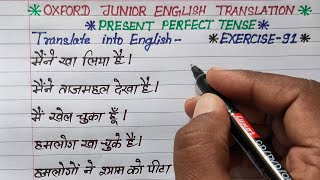 *OXFORD JUNIOR ENGLISH TRANSLATION
*PRESENT PERFECT TENSE*
Translate into English- *EXERCISE-91*
मैंने खा लिया है।
मैंने ताजमहल देखा है।
मैं खेल चुका हूँ।
हमलोग खा चुके हैं।
हमलोगों ने श्याम को पीटा